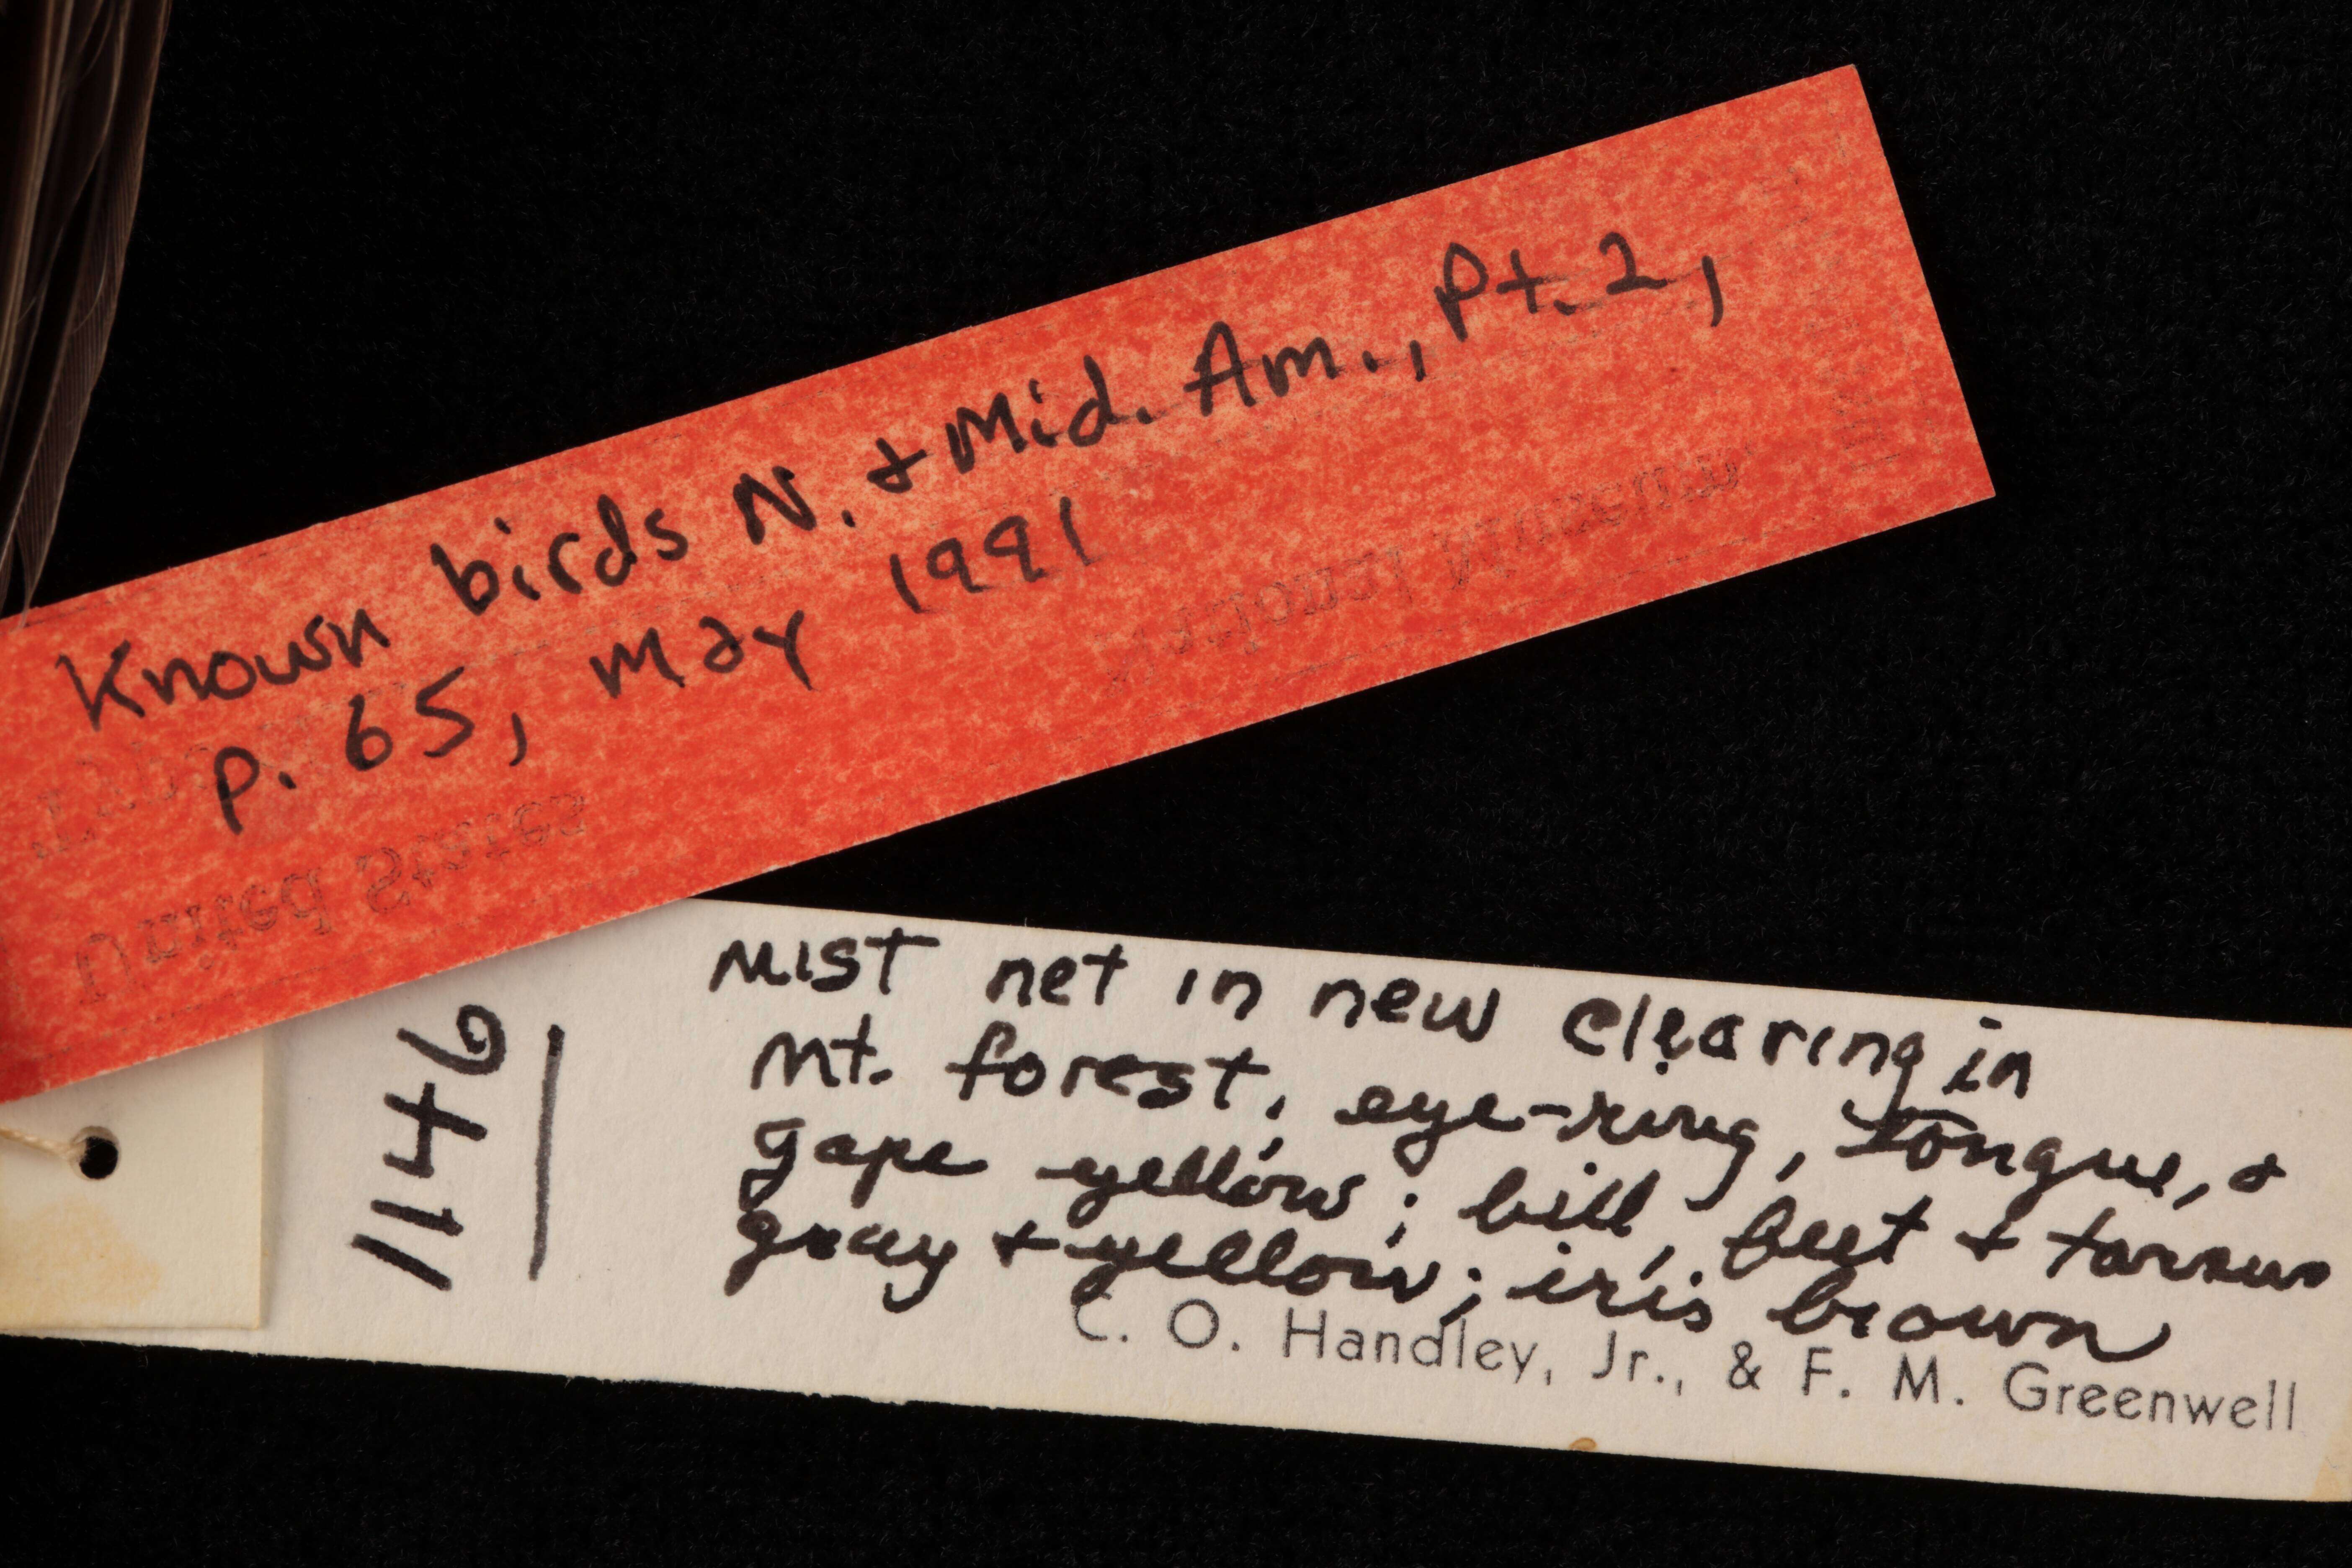 Known birds N. + Mid. Am., Pt. 2,
p. 65, May 1991
United States
National Museum
1146
Mist net in new clearing in
Mt. forest, eye-ring, tongue, +
gape yellow; bill, feet + tarsus
gray + yellow; iris brown
C. O. Handley, Jr., & F. M. Greenwell